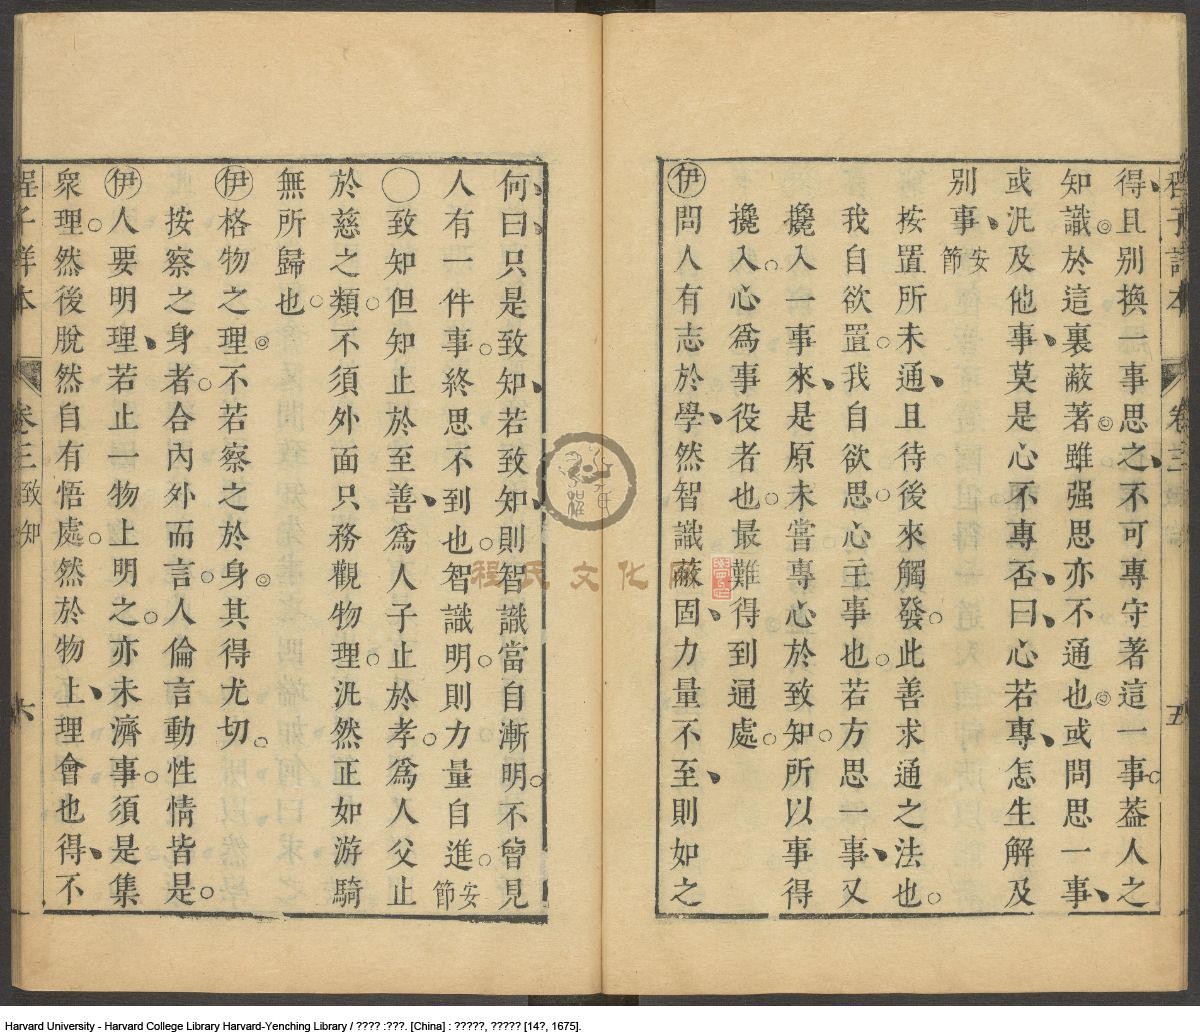 得且别換一事思之不可專守著這一事葢人之
知識於這裏蔽著雖强思亦不通也或問思一事
或汎及他事莫是心不專否曰心若專怎生解及
别事安節
按置所未通且待後來觸發此善求通之法也
我自欲置我自欲思心主事也若方思一事又
攙入一事來是原未嘗專心於致知所以事得
攙入心爲事役者也最難得到通處
伊問人有志於學然智識蔽固力量不至則如之
何曰只是致知若致知則智識當自漸明不曾見
人有一件事終思不到也智識明則力量自進安節
致知但知止於至善爲人子止於孝爲人父止
於慈之類不須外面只務觀物理汎然正如游騎
無所歸也
伊格物之理不若察之於身其得尤切
按察之身者合內外而言人倫言動性情皆是
伊人要明理若止一物上明之亦未濟事須是集
衆理然後脫然自有悟處然於物上理會也得不
程子詳本
卷三致知
六
程子詳本
卷三
五
程氏文化
Harvard University - Harvard College Library Harvard-Yenching Library / ???? :???. [China] : ?????, ????? [14?, 1675].